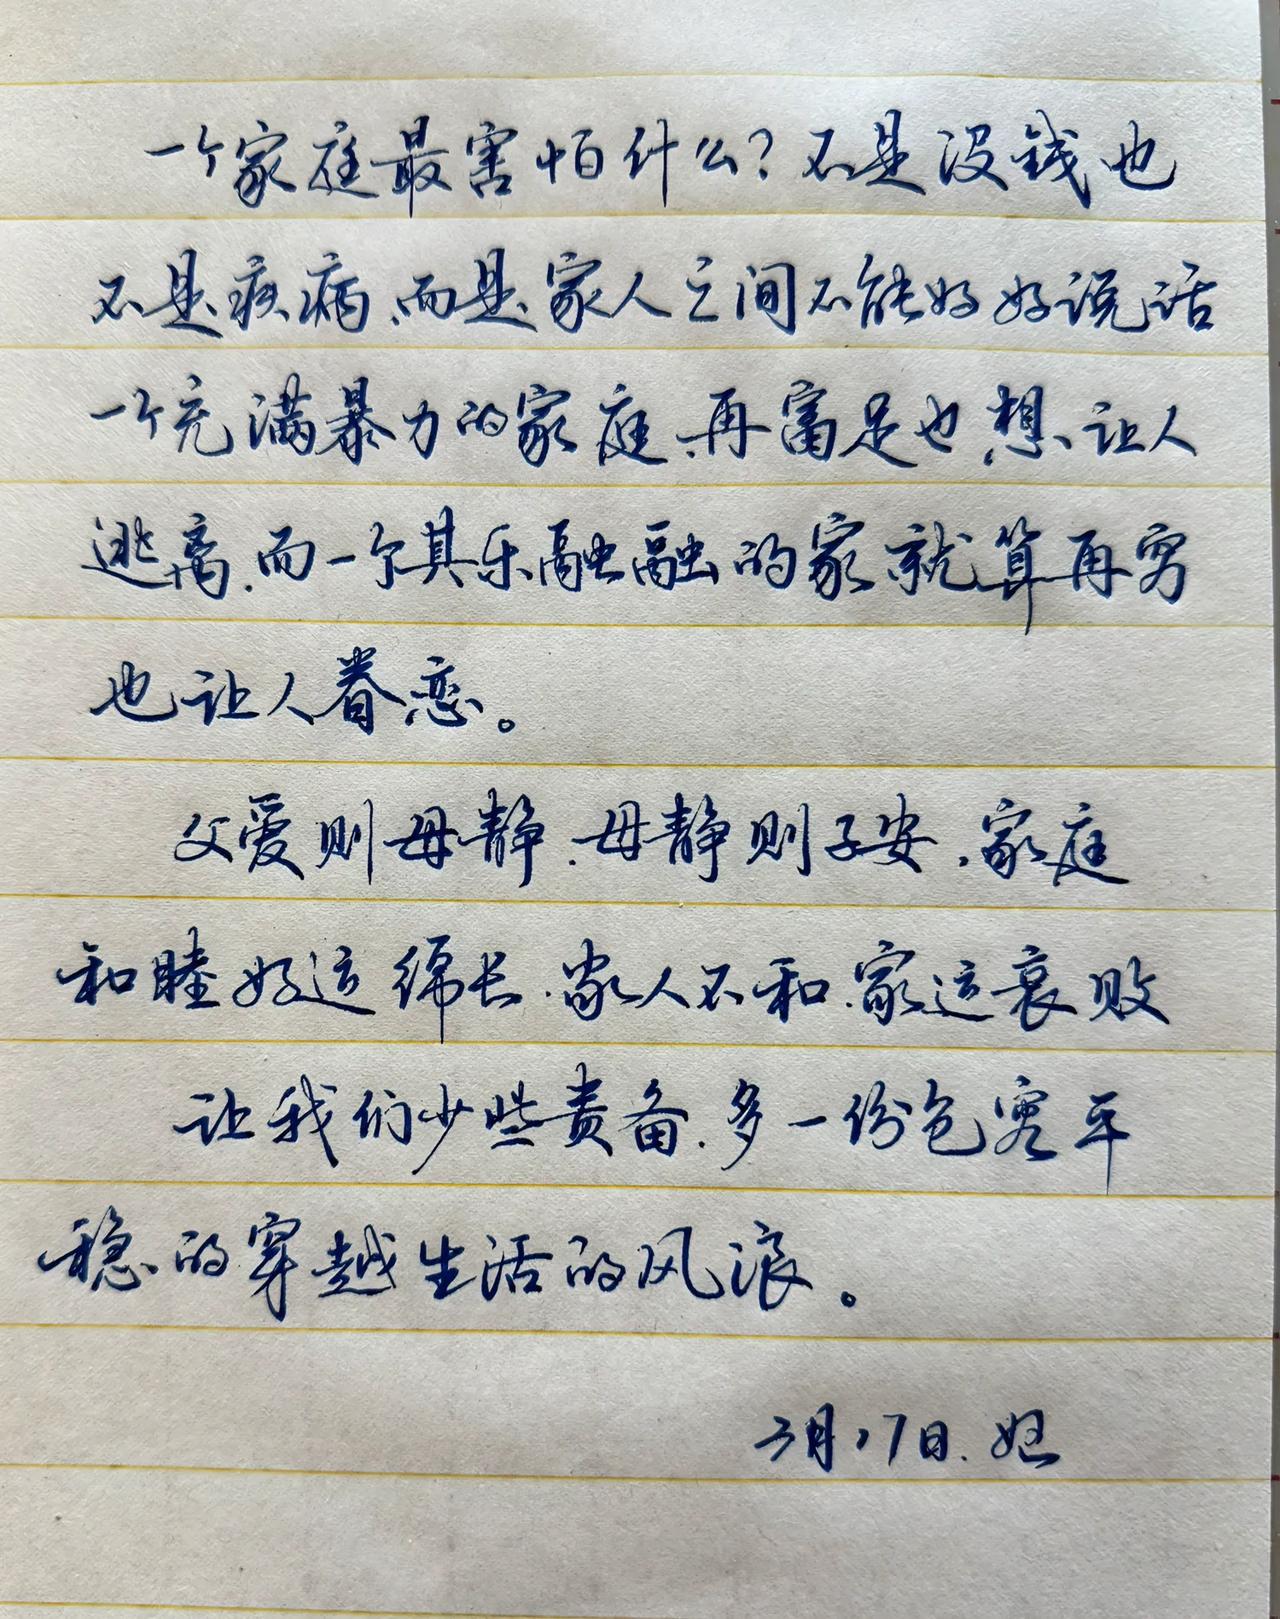 一个家庭最害怕什么？不是没钱也
不是疾病、而是家人之间不能好好说话
一个充满暴力的家庭、再富足也想让人
逃离、而一个其乐融融的家就算再穷
也让人眷恋。
父爱则母静、母静则子安、家庭
和睦好运绵长、家人不和、家运衰败
让我们少些责备、多一份包容平
稳的穿越生活的风浪。
3月17日、